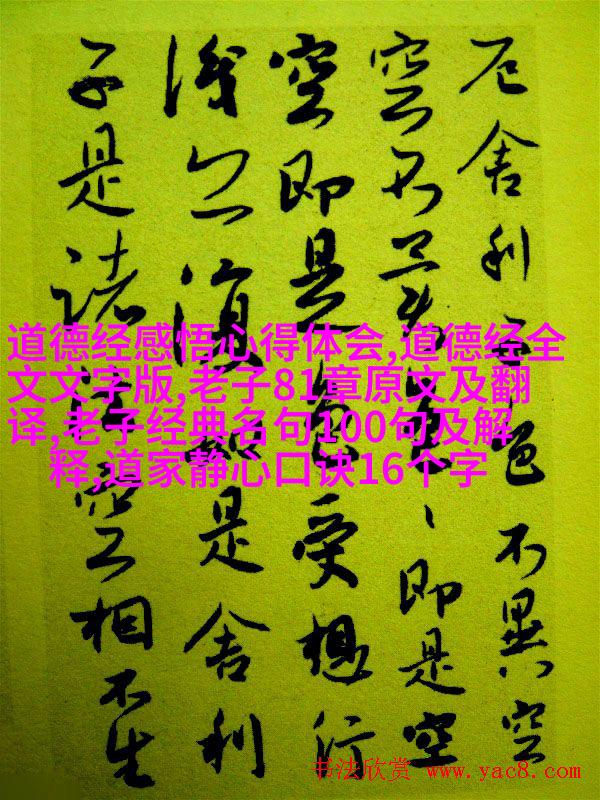 厄舍利子色不異空
空不異色、即是空
空即是色受想行
識亦復如是舍利
子是諸法空相不生
道德经感悟心得体会,道德经全
文文字版,老子81章原文及翻
译,老子经典名句100句及解
释,道家静心口诀16个字
书法欣赏 www.yac8.com